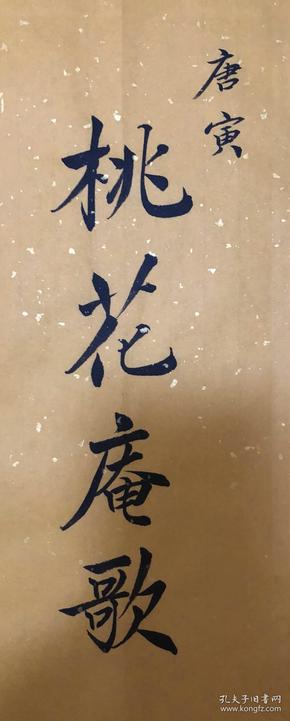 唐寅
桃花庵歌
孔夫子旧书网
www.kongfz.com